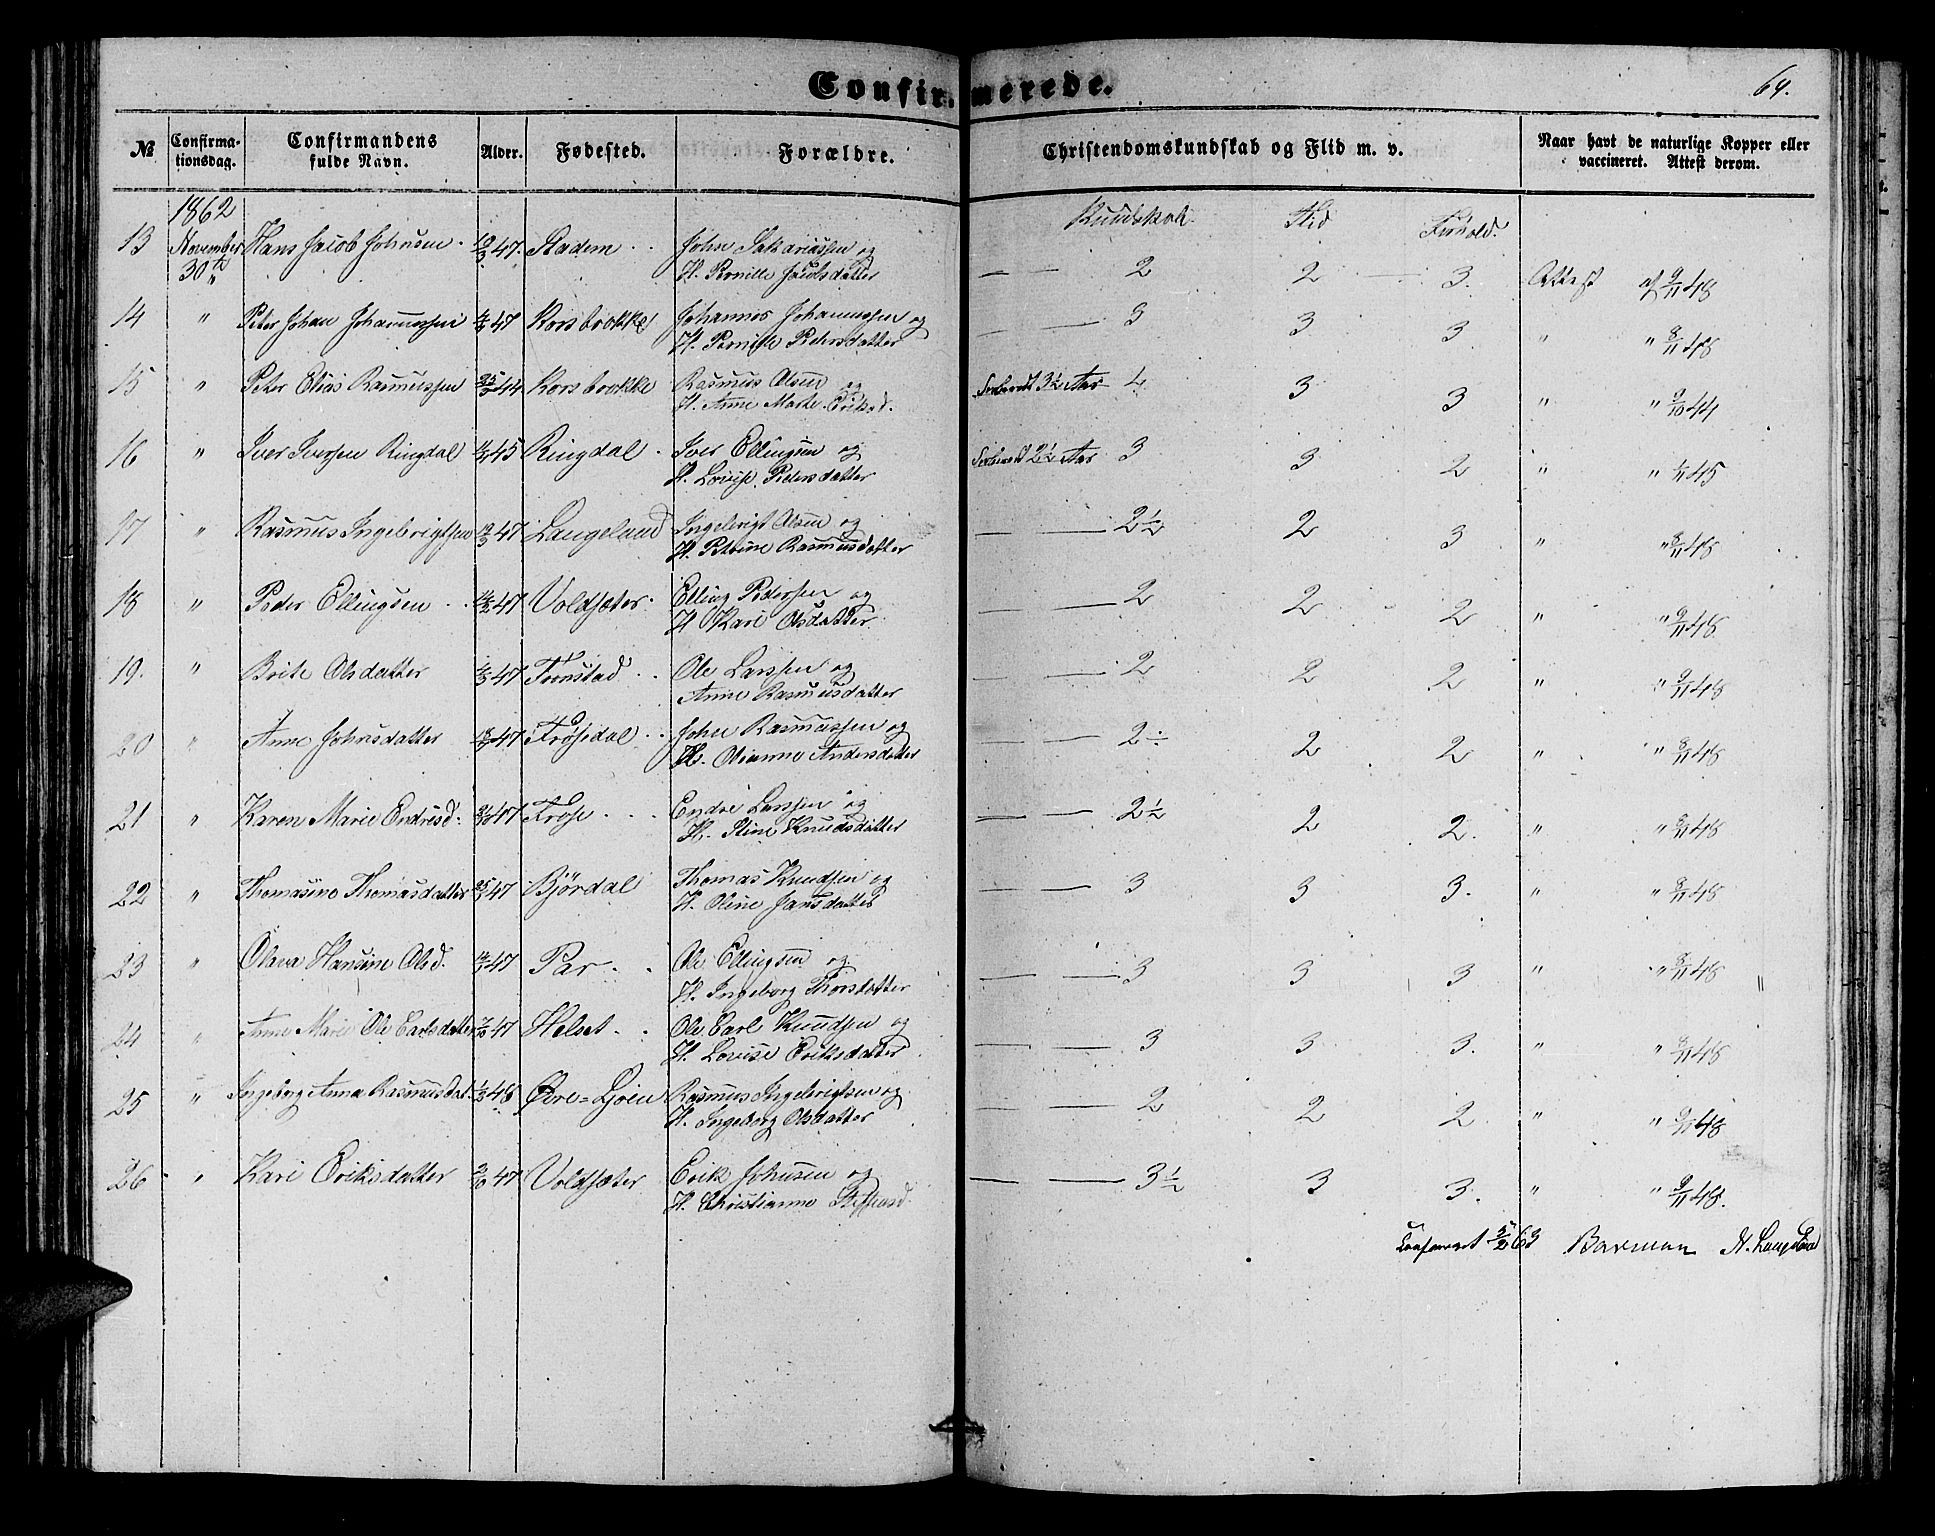 Confirmerede.
64.
№ Confirmationsdag. Confirmandens fulde Navn. Alder. Fødested. Forældre. Christendomskundskab og Flid m. v. Naar havt de naturlige Kopper eller vaccineret. Attest derom.
1862 Kundskab Flid Forhold.
13 November 30te Hans Jacob Johnsen 47. Stadem John Sakariassen og
H. Pernille Jacobsdatter 2 2 3. Attest af 9/11 48
14 " Peter Johan Johannessen 47 Korsbrække Johannes Johannessen og
H. Pernille Pedersdatter 3 3 3 " " 8/11 48
15 " Peter Elias Rasmussen 25/3 44 Korsbrække Rasmus Olsen og
H. Anne Marte Eriksd. 3½ Aar 4 3 3 " " 9/10 44
16 " Iver Iversen Ringdal 45 Ringdal Iver Ellingsen og
H. Lovise Pedersdatter 2½ Aar 3 3 2 " " 45
17 " Rasmus Ingebrigtsen 47 Langeland Ingebrigt Olsen og
H. Petrine Rasmusdatter 2½ 2 3 " " 8/11 48
18 " Peder Ellingsen 47 Voldsæter Elling Pedersen og
H. Kari Olsdatter 2 2 2 " " 9/11 48
19. " Brite Olsdatter 47 Tronstad Ole Larssen og
Anne Rasmusdatter 2 2 2 " " 9/11 48
20 " Anne Johnsdatter 47 Frøsedal John Rasmussen og
H. Olianna Andersdatter 2÷ 2 2 " " 8/11 48
21 " Karen Marie Endresd. 47 Frøse Endre Larssen og
H. Stine Knudsdatter 2½ 2 2. " " 8/11 48
22 " Thomasine Thomasdatter 47 Bjørdal Thomas Knudsen og
H. Oline Jansdatter 3 3 3. " " 8/11 48
23 " Olava Hansine Olsd. 47 Par Ole Ellingsen og
H. Ingeborg Thorsdatter 3 3 3 " " 8/11 48
24 " Anne Marie Ole Earlsdatter 47 Helset Ole Earl Knudsen og
H. Lovise Eriksdatter 3 3 3. " " 8/11 48
25 " Ingeborg Anna Rasmusdat. 48 Øvre=Ljøen Rasmus Ingebrigtsen og
H. Ingeborg Olsdatter 2 2 2. " " 9/11 48
26 " Kari Eriksdatter 47 Voldsæter Erik Johnsen og
H. Christianne Steffensd. 3½ 3 3. " " 9/11 48.
63 Barman N.